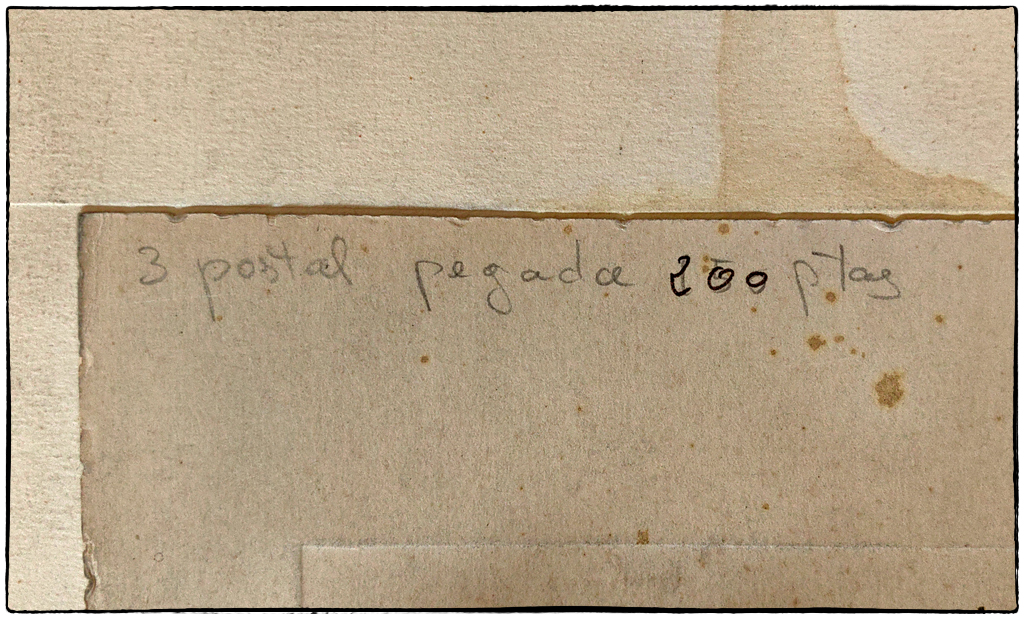 3 postal pegada 200 ptas